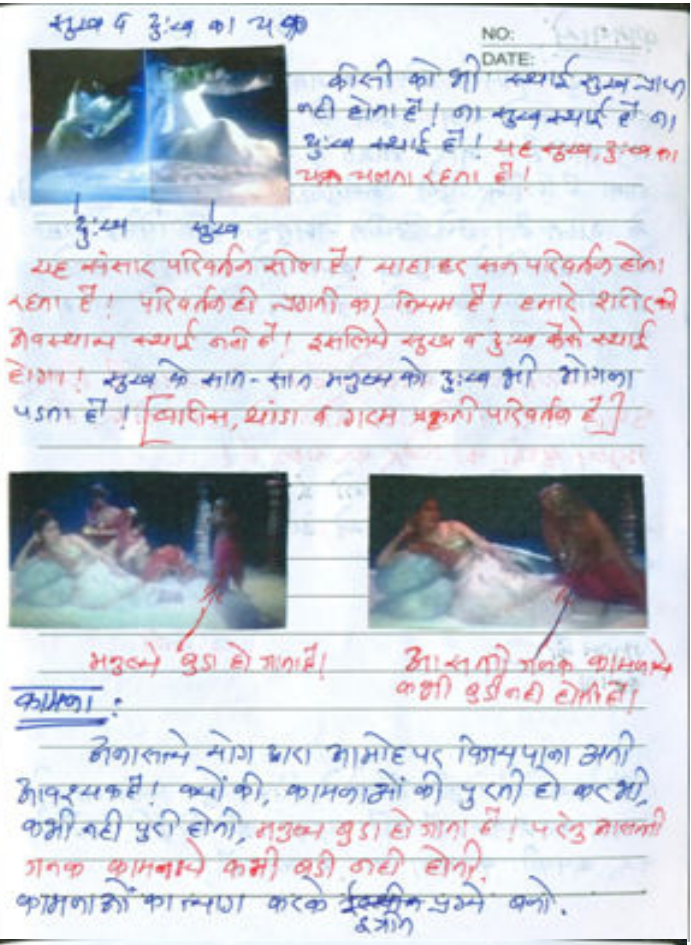 सुख व दुःख का चक्र
NO:
DATE:
कीसी को भी स्थाई सुख प्राप्त
नही होता है! ना सुख स्थाई है ना
दुःख स्थाई है! यह सुख, दुःख का
चक्र चलता रहता है!
दुःख सुख
यह संसार परिवर्तन सील है! यहा हर सन परिवर्तन होता
रहता है! परिवर्तन ही प्रगती का नियम है! हमारे शरीर की
अवस्थाय स्थाई नही है! इसलिये सुख व दुःख कैसे स्थाई
होगा! सुख के सात-सात मनुष्य को दुःख भी भोगना
पडता है! [बारीस, थांडा व गरम प्रकृती परिवर्तन है]
मनुष्ये बुडा हो जाता है! आसक्ती जनक कामनाये
कभी बुडी नही होती है!
कामना:
अनासक्ये योग द्वारा कामोदपर विजय पाना अती
आवश्यक है! क्यों की, कामनाओं की पुरती हो कर भी,
कभी नही पुरी होती, मनुष्य बुडा हो जाता है! परंतु आसक्ती
जनक कामनाये कभी बुडी नही होती.
कामनाओं का त्याग करके प्रग्ये बनो.